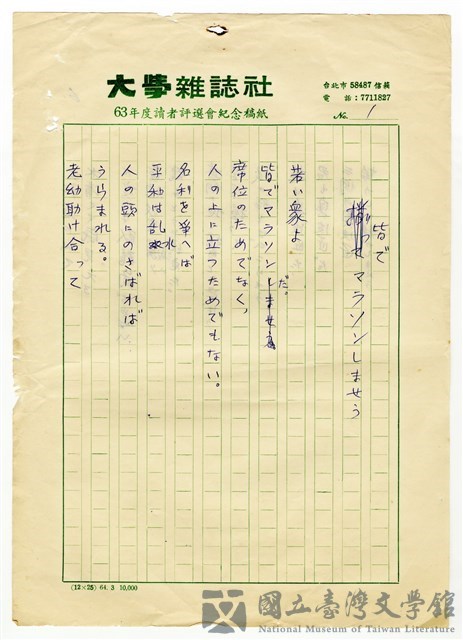 大學雜誌社
63年度讀者評選會紀念稿紙
台北市 58487 信箱
電 話:7711827
No. 1
皆で
揃って マラソンしませう
若い衆よ
皆でマラソンしませう
だ。
席位のためでなく、
人の上に立つためでもない。
名利を爭へば
平和は乱れ
人の頭にのさばれば
うらまれる。
老幼助け合って
(12×25) 64. 3 10,000
國立臺灣文學館
National Museum of Taiwan Literature